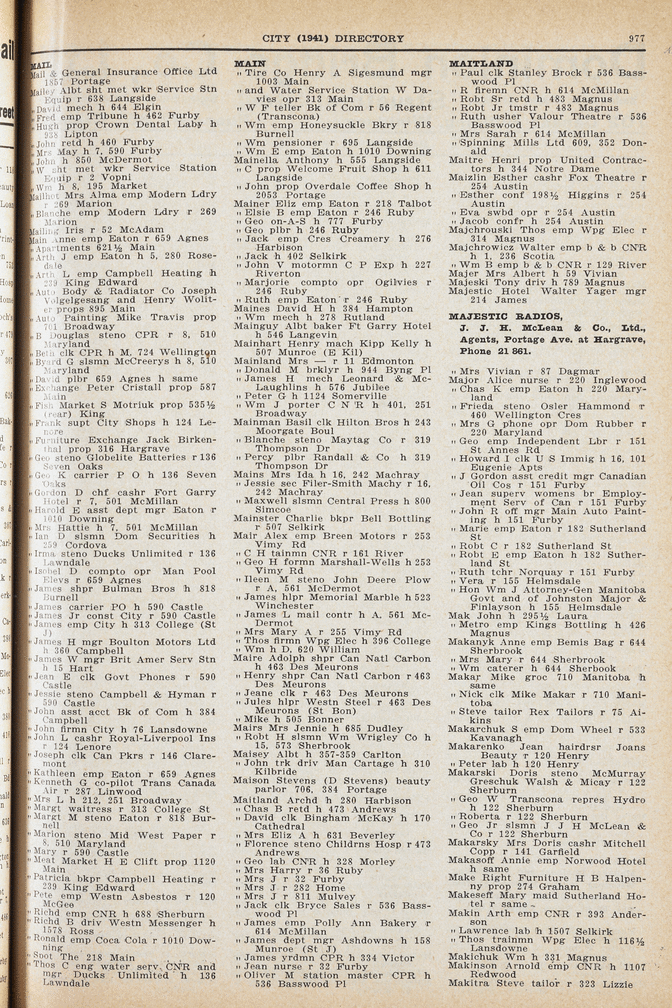 CITY (1941) DIRECTORY 977
MAIL
Mail & General Insurance Office Ltd
1857 Portage
Mailey Albt sht met wkr Service Stn
Equip r 638 Langside
" David mech h 644 Elgin
" Fred emp Tribune h 462 Furby
" Hugh prop Crown Dental Laby h
938 Lipton
" John retd h 460 Furby
" Mrs May h 7, 590 Furby
" John h 850 McDermot
" W sht met wkr Service Station
Equip r 2 Vopni
" Wm h 8, 195 Market
Mailhot Mrs Alma emp Modern Ldry
r 269 Marion
" Blanche emp Modern Ldry r 269
Marion
Mailing Iris r 52 McAdam
Main Anne emp Eaton r 659 Agnes
" Apartments 621½ Main
" Arth J emp Eaton h 5, 280 Rose-
dale
" Arth L emp Campbell Heating h
239 King Edward
" Auto Body & Radiator Co Joseph
Volgelgesang and Henry Wolit-
er props 895 Main
" Auto Painting Mike Travis prop
701 Broadway
" B Douglas steno CPR r 8, 510
Maryland
" Beth clk CPR h M, 724 Wellington
" Byard G slsmn McCreerys h 8, 510
Maryland
" David plbr 659 Agnes h same
" Exchange Peter Cristall prop 587
Main
" Fish Market S Motriuk prop 535½
(rear) King
" Frank supt City Shops h 124 Le-
nore
" Furniture Exchange Jack Birken-
thal prop 316 Hargrave
" Geo steno Globelite Batteries r 136
Seven Oaks
" Geo K carrier P O h 136 Seven
Oaks
" Gordon D chf cashr Fort Garry
Hotel r 7, 501 McMillan
" Harold E asst dept mgr Eaton r
1010 Downing
" Mrs Hattie h 7, 501 McMillan
" Ian D slsmn Dom Securities h
259 Cordova
" Irma steno Ducks Unlimited r 136
Lawndale
" Isobel D compto opr Man Pool
Elevs r 659 Agnes
" James shpr Bulman Bros h 818
Burnell
" James carrier PO h 590 Castle
" James Jr const City r 590 Castle
" James emp City h 313 College (St
J)
" James H mgr Boulton Motors Ltd
h 360 Campbell
" James W mgr Brit Amer Serv Stn
h 15 Hart
" Jean E clk Govt Phones r 590
Castle
" Jessie steno Campbell & Hyman r
590 Castle
" John asst acct Bk of Com h 384
Campbell
" John firmn City h 76 Lansdowne
" John L cashr Royal-Liverpool Ins
r 124 Lenore
" Joseph clk Can Pkrs r 146 Clare-
mont
" Kathleen emp Eaton r 659 Agnes
" Kenneth G co-pilot Trans Canada
Air r 287 Linwood
" Mrs L h 212, 251 Broadway
" Margt waitress r 313 College St
" Margt M steno Eaton r 818 Bur-
nell
" Marion steno Mid West Paper r
8, 510 Maryland
" Mary r 590 Castle
" Meat Market H E Clift prop 1120
Main
" Patricia bkpr Campbell Heating r
239 King Edward
" Pete emp Westn Asbestos r 120
McGee
" Richd emp CNR h 688 Sherburn
" Richd B driv Westn Messenger h
1578 Ross
" Ronald emp Coca Cola r 1010 Dow-
ning
" Spot The 218 Main
" Thos C eng water serv. CNR and
mgr Ducks Unlimited h 136
Lawndale
MAIN
" Tire Co Henry A Sigesmund mgr
1003 Main
" and Water Service Station W Da-
vies opr 313 Main
" W F teller Bk of Com r 56 Regent
(Transcona)
" Wm emp Honeysuckle Bkry r 818
Burnell
" Wm pensioner r 695 Langside
" Wm E emp Eaton h 1010 Downing
Mainella Anthony h 555 Langside
" C prop Welcome Fruit Shop h 611
Langside
" John prop Overdale Coffee Shop h
2053 Portage
Mainer Eliz emp Eaton r 218 Talbot
" Elsie B emp Eaton r 246 Ruby
" Geo on-A-S h 777 Furby
" Geo plbr h 246 Ruby
" Jack emp Cres Creamery h 276
Harbison
" Jack h 402 Selkirk
" John V motormn C P Exp h 227
Riverton
" Marjorie compto opr Ogilvies r
246 Ruby
" Ruth emp Eaton r 246 Ruby
Maines David H h 384 Hampton
" Wm mech h 278 Rutland
Mainguy Albt baker Ft Garry Hotel
h 546 Langevin
Mainhart Henry mach Kipp Kelly h
507 Munroe (E Kil)
Mainland Mrs — r 11 Edmonton
" Donald M brklyr h 944 Byng Pl
" James H mech Leonard & Mc-
Laughlins h 576 Jubilee
" Peter G h 1124 Somerville
" Wm J porter C N R h 401, 251
Broadway
Mainman Basil clk Hilton Bros h 243
Moorgate Boul
" Blanche steno Maytag Co r 319
Thompson Dr
" Percy plbr Randall & Co h 319
Thompson Dr
Mains Mrs Ida h 16, 242 Machray
" Jessie sec Filer-Smith Machy r 16,
242 Machray
" Maxwell slsmn Central Press h 800
Simcoe
Mainster Charlie bkpr Bell Bottling
r 507 Selkirk
Mair Alex emp Breen Motors r 253
Vimy Rd
" C H tainmn CNR r 161 River
" Geo H formn Marshall-Wells h 253
Vimy Rd
" Ileen M steno John Deere Plow
r A, 561 McDermot
" James hlpr Memorial Marble h 523
Winchester
" James L mail contr h A, 561 Mc-
Dermot
" Mrs Mary A r 255 Vimy Rd
" Thos firmn Wpg Elec h 396 College
" Wm h D, 620 William
Maire Adolph shpr Can Natl Carbon
h 463 Des Meurons
" Henry shpr Can Natl Carbon r 463
Des Meurons
" Jeane clk r 463 Des Meurons
" Jules hlpr Westn Steel r 463 Des
Meurons (St Bon)
" Mike h 505 Bonner
Mairs Mrs Jennie h 685 Dudley
" Robt H slsmn Wm Wrigley Co h
15, 573 Sherbrook
Maisey Albt h 357-359 Carlton
" John trk driv Man Cartage h 310
Kilbride
Maison Stevens (D Stevens) beauty
parlor 706, 384 Portage
Maitland Archd h 280 Harbison
" Chas B retd h 473 Andrews
" David clk Bingham McKay h 170
Cathedral
" Mrs Eliz A h 631 Beverley
" Florence steno Childrns Hosp r 473
Andrews
" Geo lab CNR h 328 Morley
" Mrs Harry r 36 Ruby
" Mrs J r 32 Furby
" Mrs J r 282 Home
" Mrs J r 811 Mulvey
" Jack clk Bryce Sales r 536 Bass-
wood Pl
" James emp Polly Ann Bakery r
614 McMillan
" James dept mgr Ashdowns h 158
Munroe (St J)
" James yrdmn CPR h 334 Victor
" Jean nurse r 32 Furby
" Oliver M station master CPR h
536 Basswood Pl
MAITLAND
" Paul clk Stanley Brock r 536 Bass-
wood Pl
" R firemn CNR h 614 McMillan
" Robt Sr retd h 483 Magnus
" Robt Jr tmstr r 483 Magnus
" Ruth usher Valour Theatre r 536
Basswood Pl
" Mrs Sarah r 614 McMillan
" Spinning Mills Ltd 609, 352 Don-
ald
Maitre Henri prop United Contrac-
tors h 344 Notre Dame
Maizlin Esther cashr Fox Theatre r
254 Austin
" Esther conf 198½ Higgins r 254
Austin
" Eva swbd opr r 254 Austin
" Jacob confr h 254 Austin
Majchrouski Thos emp Wpg Elec r
314 Magnus
Majchrowicz Walter emp b & b CNR
h 1, 236 Scotia
" Wm B emp b & b CNR r 129 River
Major Mrs Albert h 59 Vivian
Majeski Tony driv h 789 Magnus
Majestic Hotel Walter Yager mgr
214 James
MAJESTIC RADIOS,
J. J. H. McLean & Co., Ltd.,
Agents, Portage Ave. at Hargrave,
Phone 21 861.
" Mrs Vivian r 87 Dagmar
Major Alice nurse r 220 Inglewood
" Chas K emp Eaton h 220 Mary-
land
" Frieda steno Osler Hammond r
460 Wellington Cres
" Mrs G phone opr Dom Rubber r
220 Maryland
" Geo emp Independent Lbr r 151
St Annes Rd
" Howard I clk U S Immig h 16, 101
Eugenie Apts
" J Gordon asst credit mgr Canadian
Oil Cos r 151 Furby
" Jean superv womens br Employ-
ment Serv of Can r 151 Furby
" John R off mgr Main Auto Paint-
ing h 151 Furby
" Marie emp Eaton r 182 Sutherland
St
" Robt C r 182 Sutherland St
" Robt E emp Eaton h 182 Suther-
land St
" Ruth tchr Norquay r 151 Furby
" Vera r 155 Helmsdale
" Hon Wm J Attorney-Gen Manitoba
Govt and of Johnston Major &
Finlayson h 155 Helmsdale
Mak John h 295½ Laura
" Metro emp Kings Bottling h 426
Magnus
Makanyk Anne emp Bemis Bag r 644
Sherbrook
" Mrs Mary r 644 Sherbrook
" Wm caterer h 644 Sherbook
Makar Mike groc 710 Manitoba h
same
" Nick clk Mike Makar r 710 Mani-
toba
" Steve tailor Rex Tailors r 75 Ai-
kins
Makarchuk S emp Dom Wheel r 533
Kavanagh
Makarenko Jean hairdrsr Joans
Beauty r 120 Henry
" Peter lab h 120 Henry
Makarski Doris steno McMurray
Greschuk Walsh & Micay r 122
Sherburn
" Geo W Transcona repres Hydro
h 122 Sherburn
" Roberta r 122 Sherburn
" Geo Jr slsmn J J H McLean &
Co r 122 Sherburn
Makarsky Mrs Doris cashr Mitchell
Copp r 141 Garfield
Makasoff Annie emp Norwood Hotel
h same
Make Right Furniture H B Halpen-
ny prop 274 Graham
Makeseff Mary maid Sutherland Ho-
tel r same
Makin Arth emp CNR r 393 Ander-
son
" Lawrence lab h 1507 Selkirk
" Thos trainmn Wpg Elec h 116½
Lansdowne
Makichuk Wm h 331 Magnus
Makinson Arnold emp CNR h 1107
Redwood
Makitra Steve tailor r 323 Lizzie